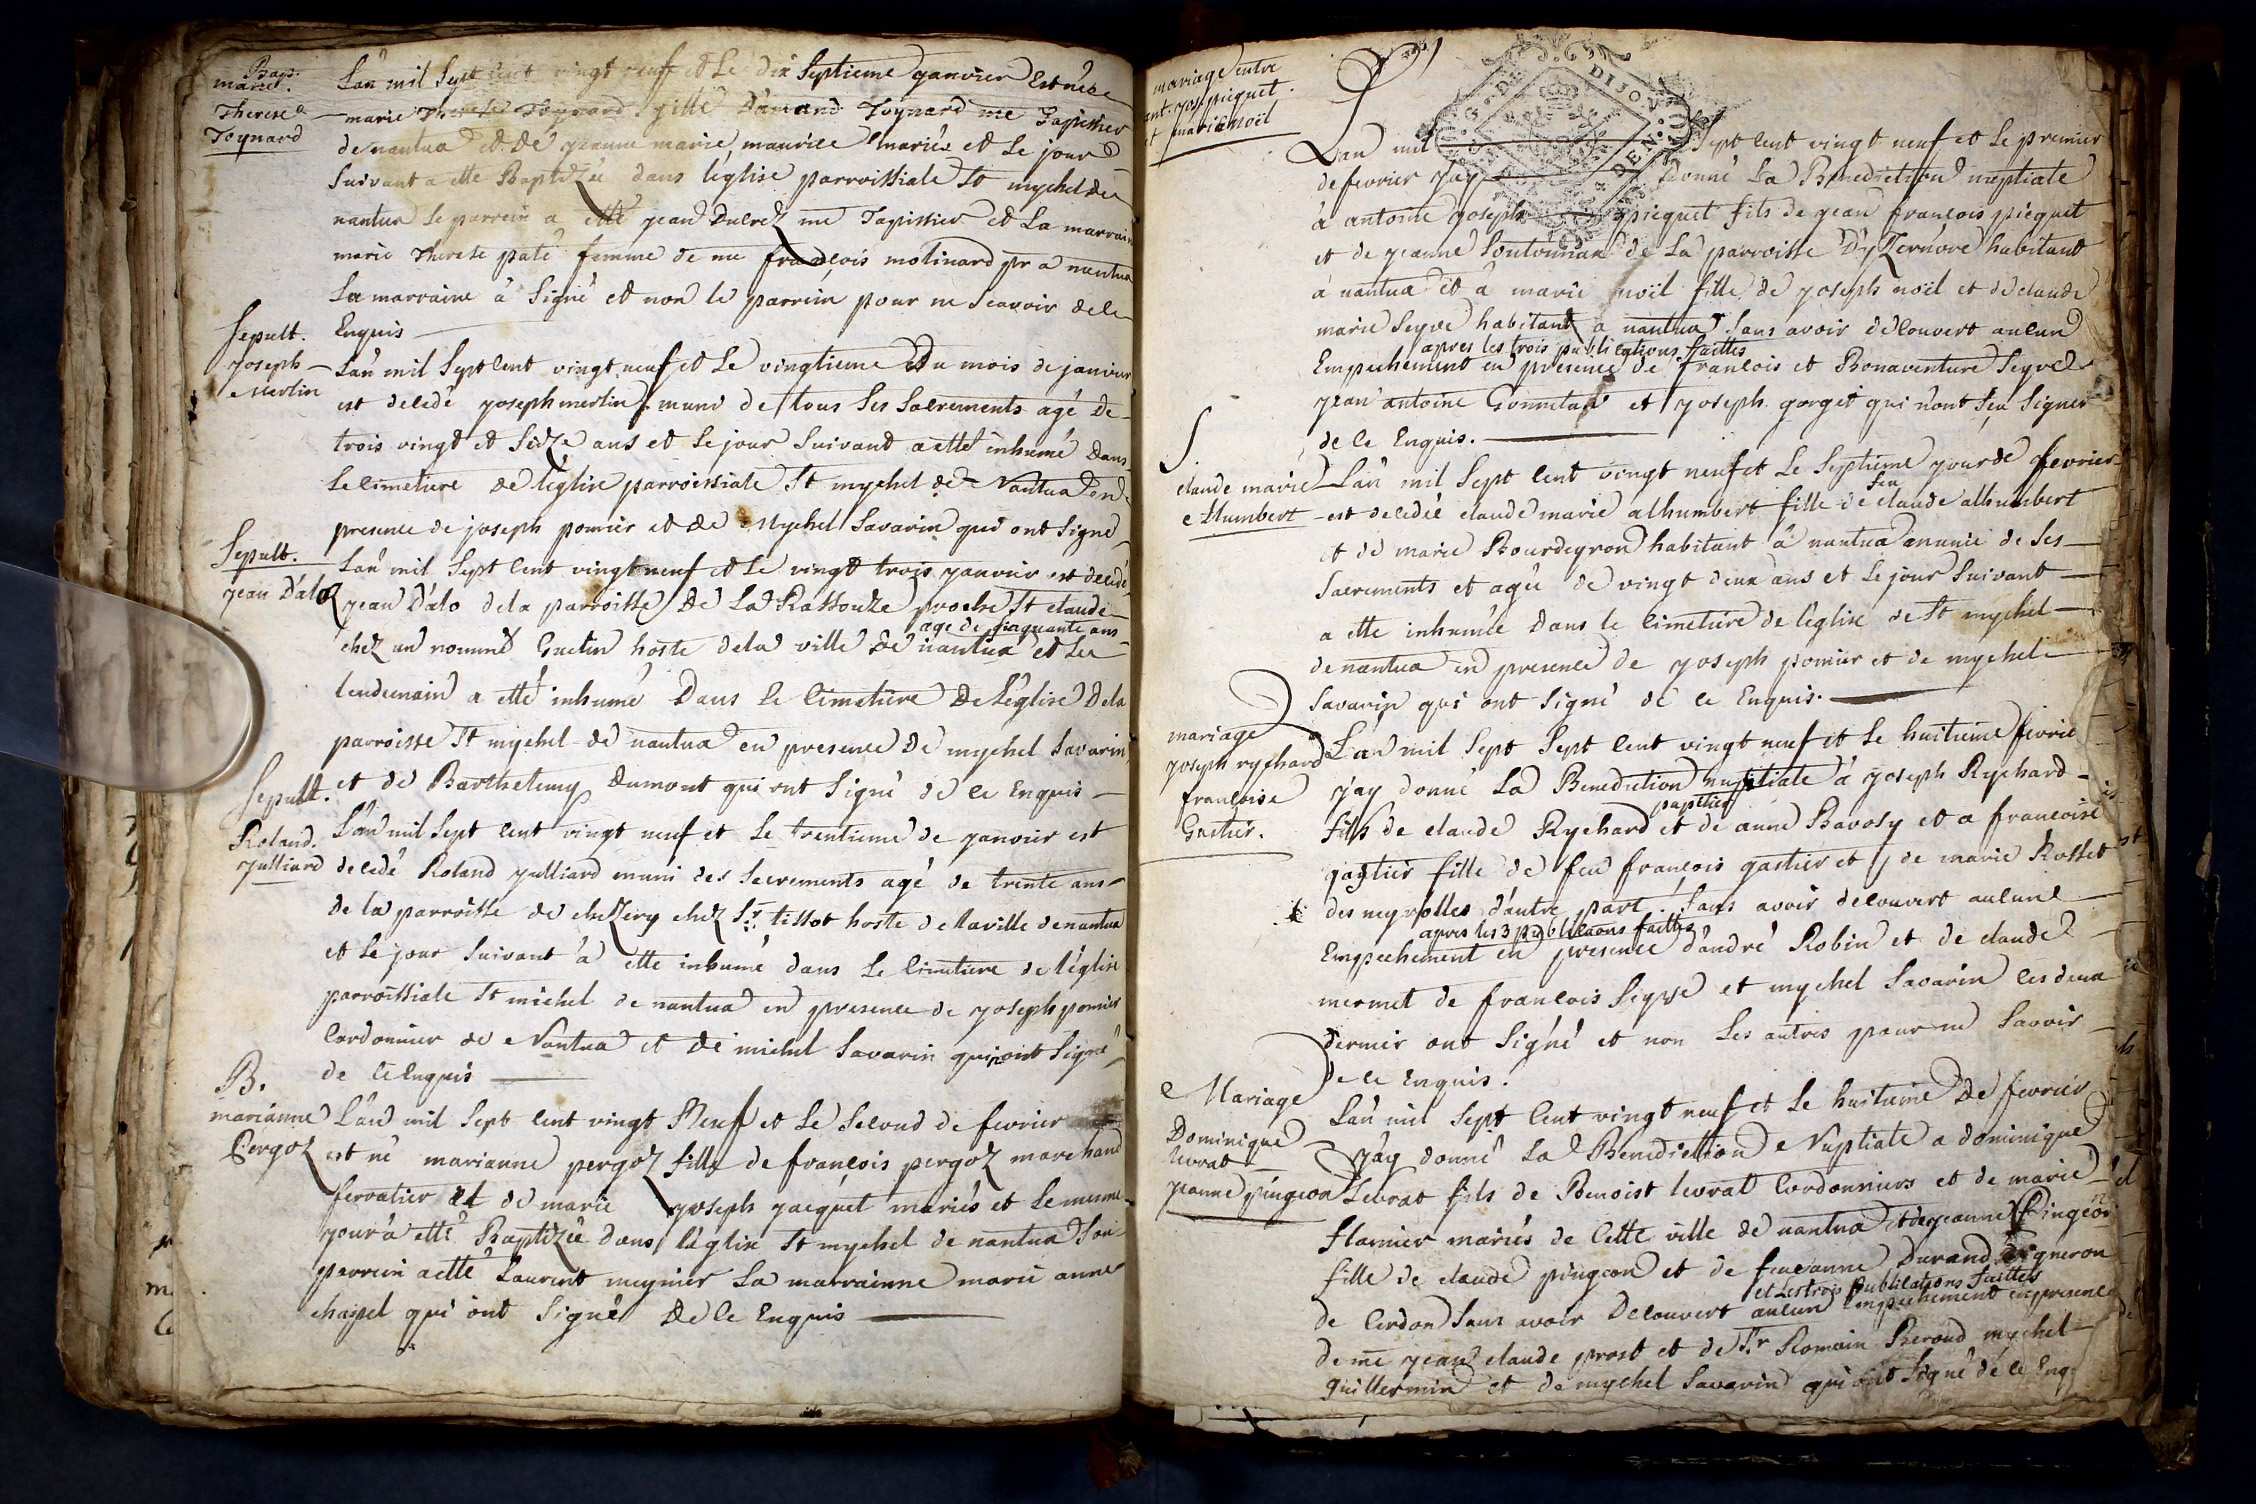 Bap.
marie.
Therese
Toynard
L'an mil Sept cent vingt neuf et Le dix Septieme janvier Est née
marie Therese Toynard fille D'amand Toynard me Tapissier
de nantua et De jeanne marie maurice mariés et Le jour
Suivant a etté Baptizée dans l'eglise parroissiale St mychel de
nantua Le parrein a etté jean Ducrez me Tapissier et La marraine
marie Therese paté femme de me francois molinard pr a nantua
La marraine à Signé et non le parrein pour ne Scavoir de ce
Enquis
Sepult.
joseph
Merlin
L'an mil Sept cent vingt neuf et Le vingtieme Du mois de janvier
est decedé joseph merlin muni de tous Ses Sacrements agé de
trois vingt et Seize ans et Le jour Suivant a etté inhumé Dans
Le cimetiere de l'eglise parroissiale St mychel de Nantua en
presence de joseph pomier et de Mychel Savarin qui ont Signé
Sepult.
jean D'alo
L'an mil Sept cent vingt neuf et Le vingt trois janvier est decedé
jean D'alo de la parroisse De La Rassouze proche St claude
age de cinquante ans
chez un nommé Guetin hoste de la ville De nantua et Le
lendemain a etté inhumé Dans le cimetiere De L'eglise De la
parroisse St mychel de nantua en presence De mychel Savarin
et de Barthelemy Dumont qui ont Signé de ce Enquis
Sepult.
Roland.
julliard
L'an mil Sept cent vingt neuf et Le trentieme de janvier est
decedé Roland julliard muni des Sacrements agé de trente ans
de la parroisse de chezery chez Sr. tissot hoste de la ville de nantua
et Le jour Suivant à etté inhumé dans Le cimetiere de l'eglise
parroissiale St michel de nantua en presence de joseph pomier
Cordonnier de Nantua et de michel Savarin qui ont Signé
de ce Enquis
B.
marianne
Pergoz
L'an mil Sept cent vingt Neuf et Le Second de fevrier
est né marianne pergoz fille de francois pergoz marchand
ferratier et de marie joseph jacquet mariés et Le mesme
jour à etté Baptizée dans l'eglise St mychel de nantua Son
parrein a etté Laurent meynier La marrainne marie anne
chapel qui ont Signé De Ce Enquis
mariage entre
ant. jos. picquet.
et marie noël
DIJON
L'an mil Sept cent vingt neuf et Le premier
de fevrier jay donné La Benediction nuptiale
à antoine joseph picquet fils de jean francois picquet
et de jeanne Soutonnax de La parroisse D'yzernore habitant
a nantua et a marie noël fille de joseph noël et de claude
marie Seyve habitant a nantua Sans avoir découvert aucun
apres les trois publications faittes
Empechement en presence de francois et Bonaventure Seyve
jean antoine Gonnetan et joseph gorget qui n'ont Sçu Signer
de ce Enquis.
S
claude marie
Alumbert
L'an mil Sept cent vingt neuf et Le Septieme jour de fevrier
feu
est decedée claude marie alhumbert fille de claude alhumbert
et de marie Bourdeyron habitant à nantua munie de Ses
Sacrements et agée de vingt deux ans et Le jour Suivant
a etté inhumée dans le cimetiere de l'eglise de St mychel
de nantua en presence de joseph pomier et de mychel
Savarin qui ont Signé de ce Enquis.
mariage
joseph rychard
francoise
Gastier.
L'an mil Sept Sept cent vingt neuf et Le huitieme fevrie
j'ay donné La Benediction nuptiale à joseph Rychard
papetier
fils de claude Rychard et de anne Bavosy et a francoise
gastier fille de feu francois gastier et de marie Rosset
des neyrolles d'autre part. Sans avoir decouvert aucune
apres les 3 publicaons faittes
Empechement en presence d'andré Robin et de claude
mermet de francois Sigre et mychel Savarin les deux
dernier ont Signé et non Les autres pour ne Savoir
de ce Enquis.
Mariage
Dominique
Levrat
jeanne pingeon
L'an mil Sept Cent vingt neuf et Le huitieme De fevrier
j'ay donné La Benediction Nuptiale a dominique
Levrat fils de Benoist levrat Cordonniers et de marie
flamier mariés de Cette ville de nantua et de jeanne Pingeon
fille de claude pingeon et de feue anne Durand Vigneron
et Les trois publications faittes
de Cerdon Sans avoir Decouvert aucun Empechement en presence
de me jean claude prost et de Sr Romain Beroud mychel
guillermin et de mychel Savarin qui ont Signé de ce Enq.